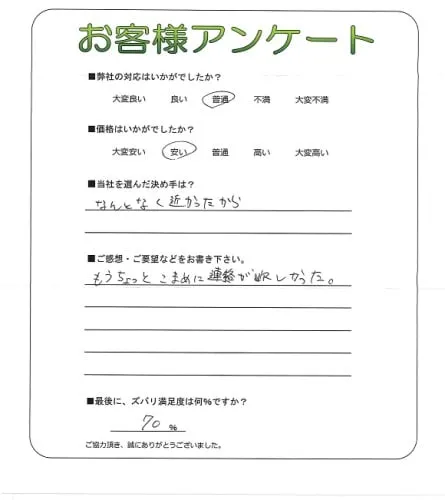 お客様アンケート
■弊社の対応はいかがでしたか？
大変良い 良い 普通 不満 大変不満
■価格はいかがでしたか？
大変安い 安い 普通 高い 大変高い
■当社を選んだ決め手は？
なんとなく近かったから
■ご感想・ご要望などをお書き下さい。
もうちょっとこまめに連絡が欲しかった。
■最後に、ズバリ満足度は何％ですか？
70 ％
ご協力頂き、誠にありがとうございました。